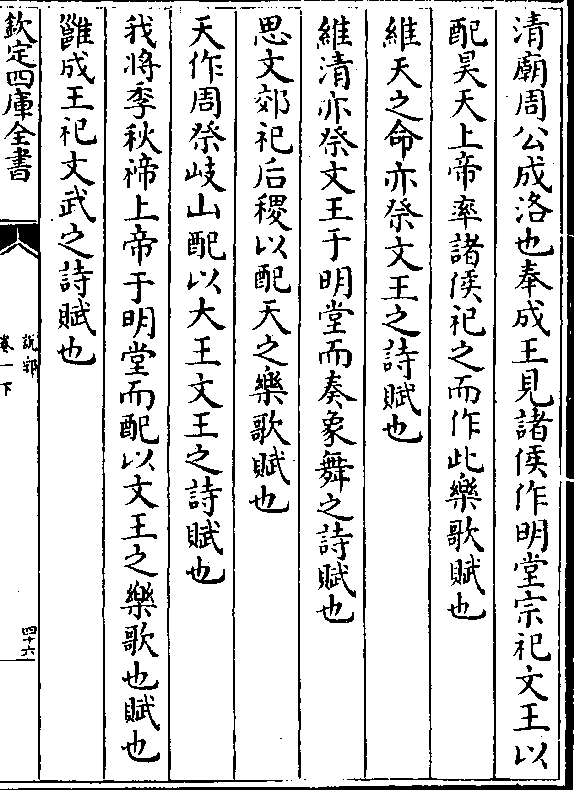 清廟周公成洛也奉成王見諸侯作明堂宗祀文王以
配昊天上帝率諸侯祀之而作此樂歌賦也
維天之命亦祭文王之詩賦也
維清亦祭文王于明堂而奏象舞之詩賦也
思文郊祀后稷以配天之樂歌賦也
天作周祭岐山配以大王文王之詩賦也
我將季秋禘上帝于明堂而配以文王之樂歌也賦也
雝成王祀文武之詩賦也
欽定四庫全書
說郛
卷一下
四十六